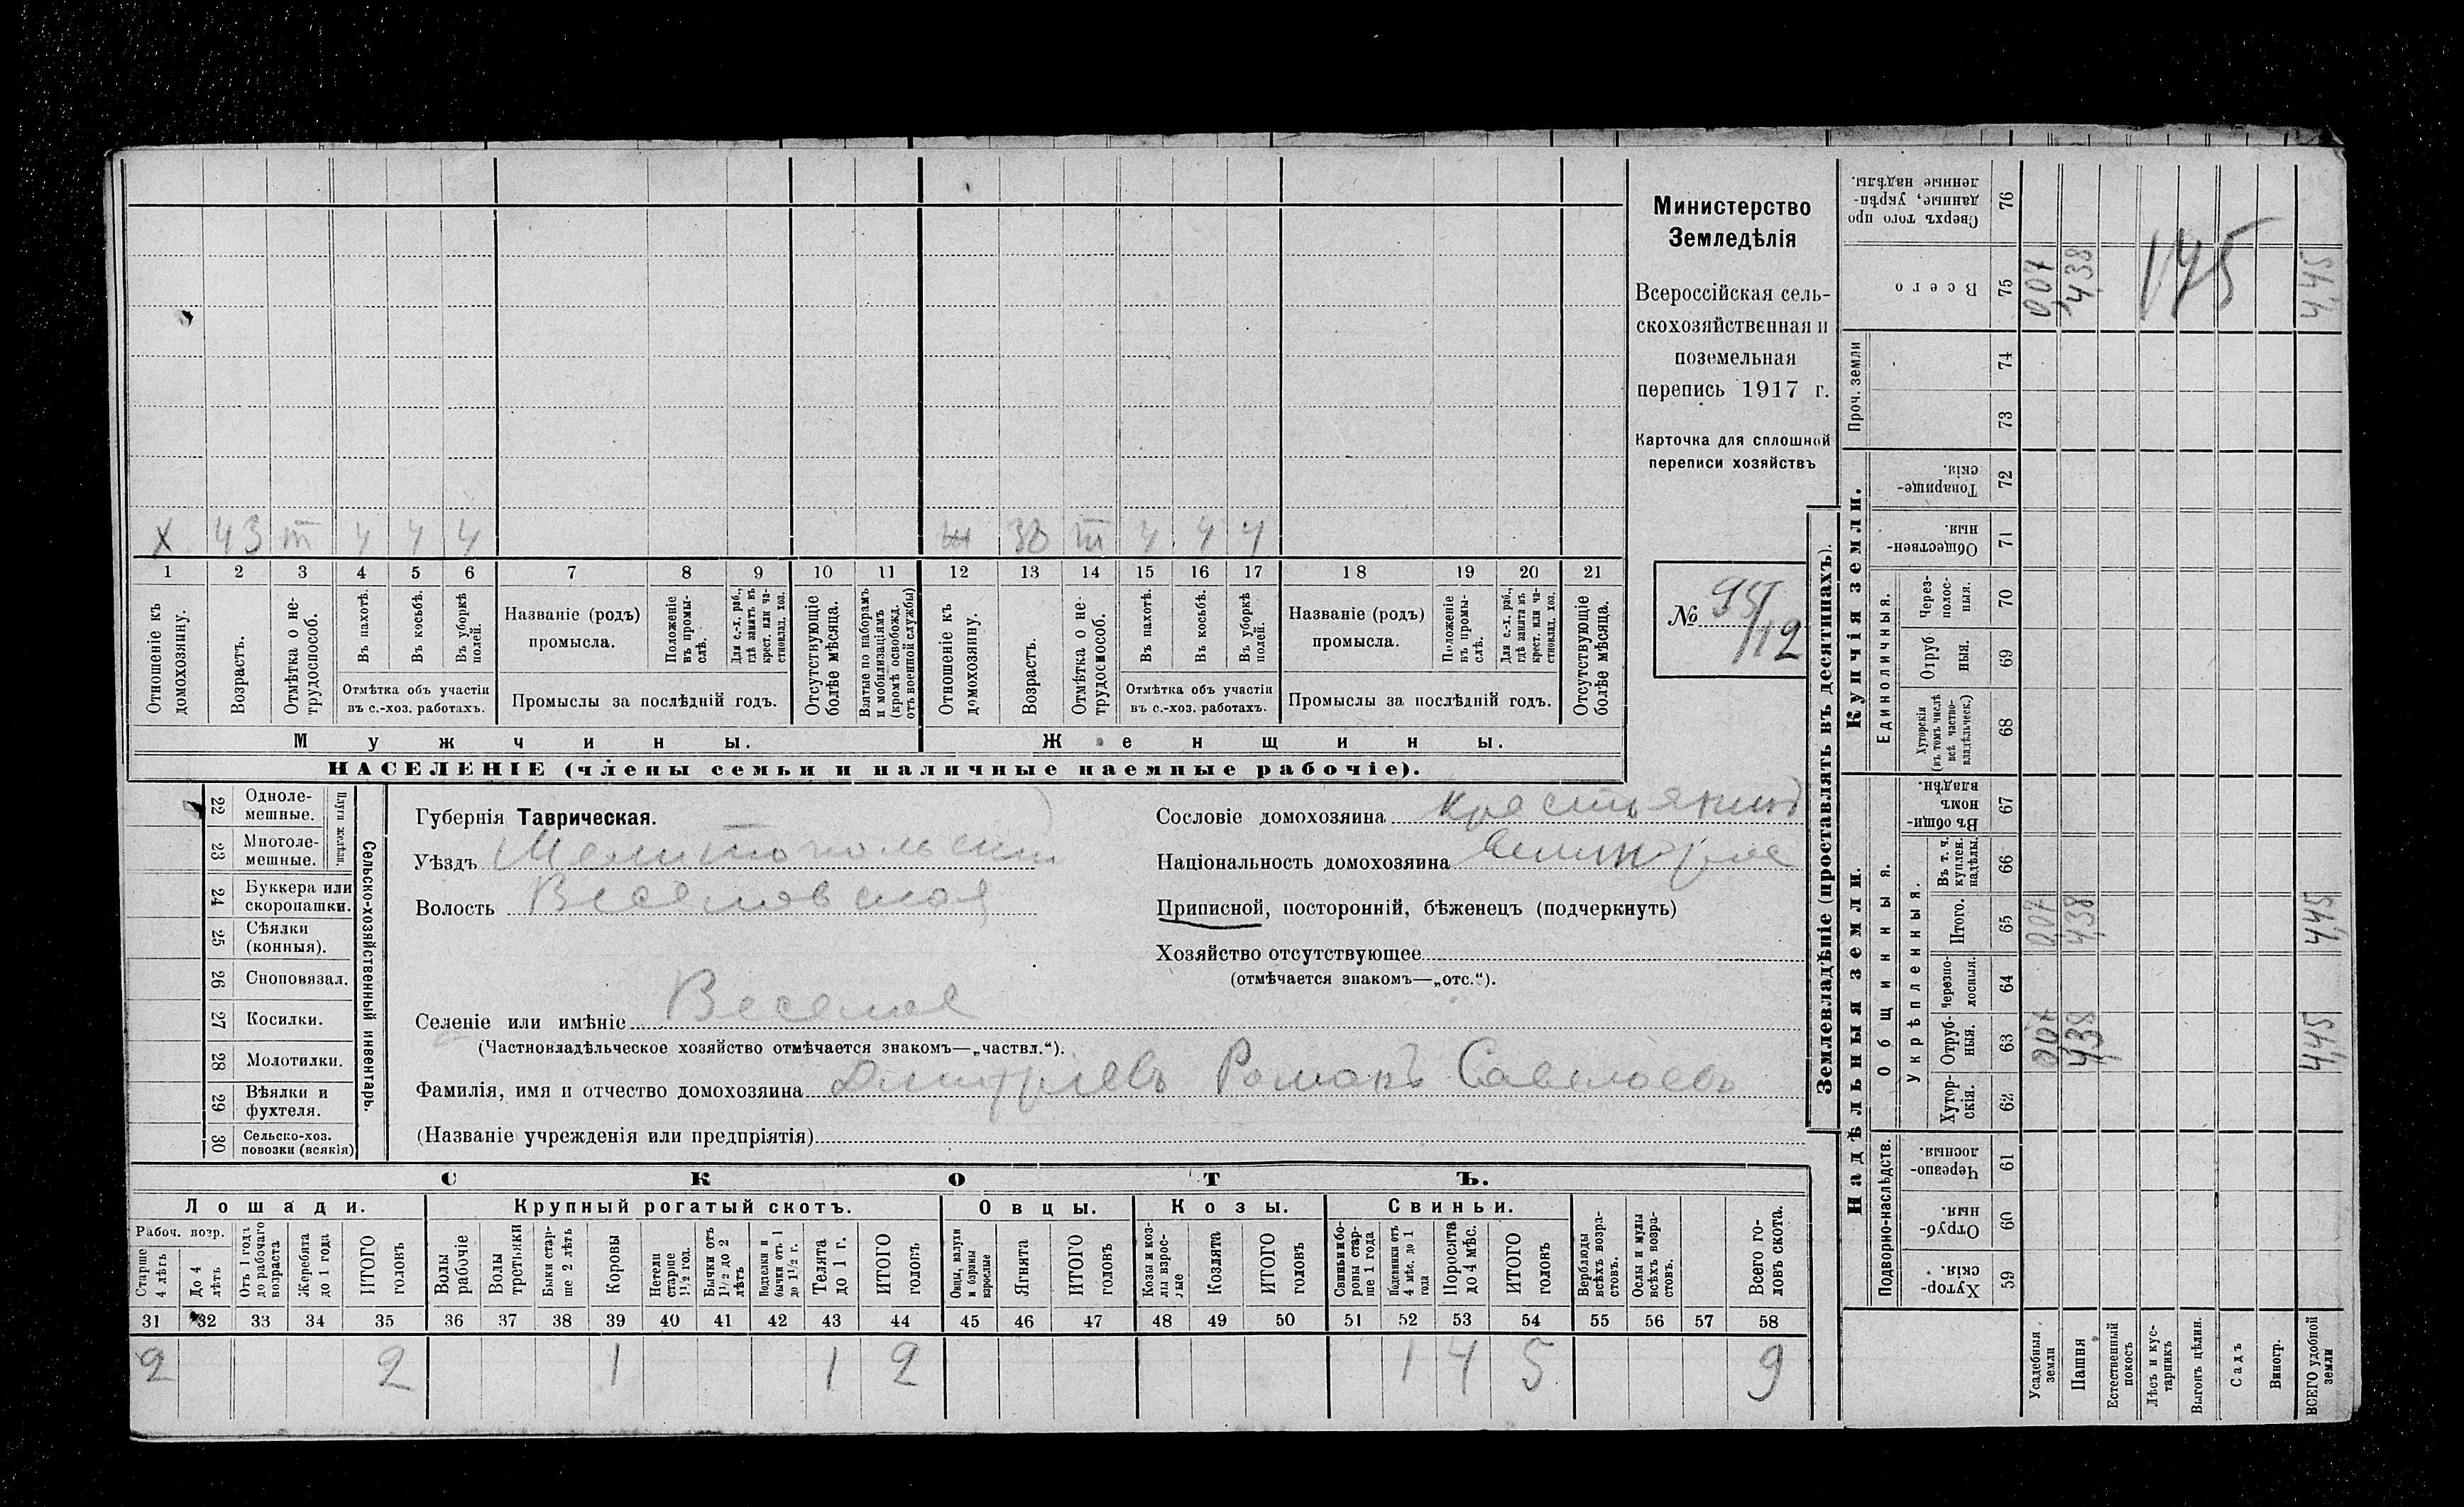 Министерство
Земледѣлія
Всероссійская сель-
скохозяйственная и
поземельная
перепись 1917 г.
Карточка для сплошной
переписи хозяйствъ
№ 95/12
X 43 m ч ч ч
ж 38 m ч ч ч
1 2 3 4 5 6 7 8 9 10 11 12 13 14 15 16 17 18 19 20 21
Отношеніе къ домохозяину.
Возрастъ.
Отмѣтка о не-трудоспособ.
Въ пахотѣ.
Въ косьбѣ.
Въ уборкѣ полей.
Отмѣтка объ участіи
въ с.-хоз. работахъ.
Названіе (родъ)
промысла.
Положеніе въ промы-слѣ.
Для с.-х. раб., гдѣ занятъ въ крест. или ча-стновлад. хоз.
Промыслы за послѣдній годъ.
Отсутствующіе болѣе мѣсяца.
Взятые по наборамъ и мобилизаціямъ (кромѣ освобожд. отъ военной службы)
Отношеніе къ домохозяину.
Возрастъ.
Отмѣтка о не-трудоспособ.
Въ пахотѣ.
Въ косьбѣ.
Въ уборкѣ полей.
Отмѣтка объ участіи
въ с.-хоз. работахъ.
Названіе (родъ)
промысла.
Положеніе въ промы-слѣ.
Для с.-х. раб., гдѣ занята въ крест. или ча-стновлад. хоз.
Промыслы за послѣдній годъ.
Отсутствующіе болѣе мѣсяца.
Мужчины.
Женщины.
НАСЕЛЕНІЕ (члены семьи и наличные наемные рабочіе).
Сельско-хозяйственный инвентарь.
Плуги желѣзн.
22 Одноле-мешные.
23 Многоле-мешные.
24 Буккера или скоропашки.
25 Сѣялки (конныя).
26 Сноповязал.
27 Косилки.
28 Молотилки.
29 Вѣялки и фухтеля.
30 Сельско-хоз. повозки (всякія)
Губернія Таврическая.
Уѣздъ Мелитопольскій
Волость Веселовская
Селеніе или имѣніе Веселое
(Частновладѣльческое хозяйство отмѣчается знакомъ—„частвл.“).
Фамилія, имя и отчество домохозяина Дмитріевъ Романъ Савельевъ
(Названіе учрежденія или предпріятія)
Сословіе домохозяина крестьянинъ
Національность домохозяина
Приписной, посторонній, бѣженецъ (подчеркнуть)
Хозяйство отсутствующее
(отмѣчается знакомъ—„отс.“).
СКОТЪ.
Лошади.
Крупный рогатый скотъ.
Овцы.
Козы.
Свиньи.
Рабоч. возр.
Старше 4 лѣтъ
До 4 лѣтъ
Отъ 1 года до рабочаго возраста
Жеребята до 1 года
ИТОГО головъ
Волы рабочіе
Волы третьяки
Быки стар-ше 2 лѣтъ
Коровы
Нетели старше 1½ год.
Бычки отъ 1½ до 2 лѣтъ
Подтелки и бычки отъ 1 до 1½ г.
Телята до 1 г.
ИТОГО головъ
Овцы, валухи и бараны взрослые
Ягнята
ИТОГО головъ
Козы и коз-лы взрос-лые
Козлята
ИТОГО головъ
Свиньи и бо-ровы стар-ше 1 года
Подсвинки отъ 4 мѣс. до 1 года
Поросята до 4 мѣс.
ИТОГО головъ
Верблюды всѣхъ возра-стовъ.
Ослы и мулы всѣхъ возра-стовъ.
Всего го-ловъ скота.
31 32 33 34 35 36 37 38 39 40 41 42 43 44 45 46 47 48 49 50 51 52 53 54 55 56 57 58
2 2 1 1 2 1 4 5 9
Землевладѣніе (проставлять въ десятинахъ).
Надѣльныя земли.
Купчія земли.
Проч. земли
Подворно-наслѣдств.
Общинныя.
Укрѣпленныя.
Единоличныя.
Сверхъ того про-данные, укрѣп-ленные надѣлы. 76
Всего 75
74
73
Товарище-скія. 72
Обществен-ныя. 71
Через-полос-ныя. 70
Отруб-ныя. 69
Хуторскія (въ томъ числѣ всѣ частно-владѣльческ.) 68
Въ общи-номъ владѣн. 67
Въ т. ч. куплен. надѣлы. 66
Итого. 65
Черезпо-лосныя. 64
Отруб-ныя. 63
Хутор-скія. 62
Черезпо-лосныя. 61
Отруб-ныя. 60
Хутор-скія. 59
Усадебныя земли
Пашня
Естественный покосъ
Лѣсъ и кус-тарникъ
Выгонъ цѣлин.
Садъ
Виногр.
ВСЕГО удобной земли
007 4,38 4,45
175
007 4,38 4,45
007 4,38 4,45